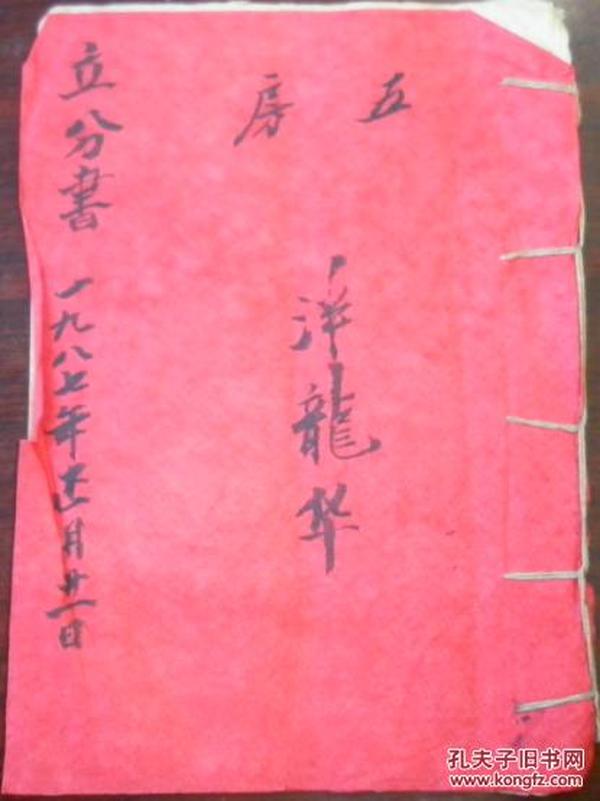 五房
洋龍华
立分書 一九八七年十一月廿一日
孔夫子旧书网
www.kongfz.com